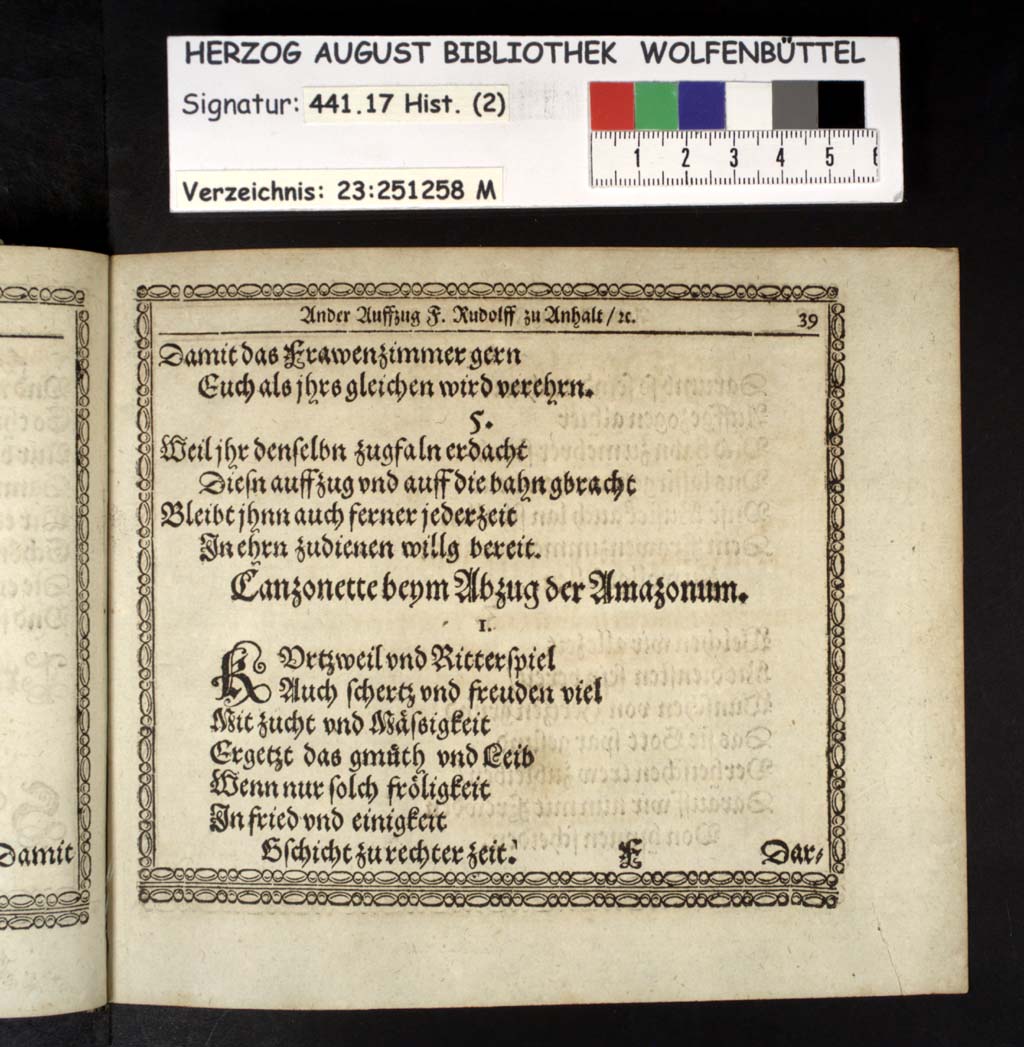 HERZOG AUGUST BIBLIOTHEK WOLFENBÜTTEL
Signatur: 441.17 Hist. (2)
Verzeichnis: 23:251258 M
1 2 3 4 5 6
Ander Auffzug F. Rudolff zu Anhalt / ꝛc. 39
Damit das Frawenzimmer gern
Euch als jhrs gleichen wird verehrn.
5.
Weil jhr denselbn zugfaln erdacht
Diesn auffzug vnd auff die bahn gbracht
Bleibt jhnn auch ferner jederzeit
In ehrn zudienen willg bereit.
Canzonette beym Abzug der Amazonum.
1.
KVrtzweil vnd Ritterspiel
Auch schertz vnd freuden viel
Mit zucht vnd Mässigkeit
Ergetzt das gmüth vnd Leib
Wenn nur solch fröligkeit
In fried vnd einigkeit
Gschicht zu rechter zeit.
F Dar-
Damit